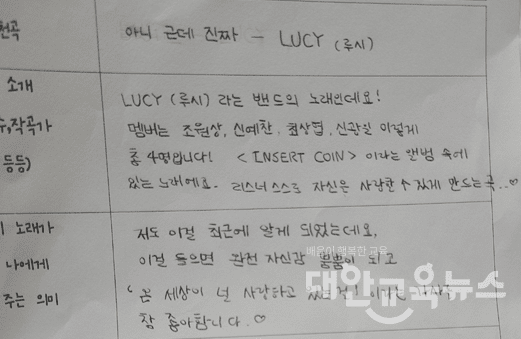 천곡
아니 근데 진짜 - LUCY (루시)
소개
수,작곡가
등등)
LUCY (루시) 라는 밴드의 노래인데요!
멤버는 조원상, 신예찬, 최상엽, 신광일 이렇게
총 4명입니다! <INSERT COIN> 이라는 앨범 속에
있는 노래에요. 리스너 스스로 자신은 사랑할 수 있게 만드는 곡..♡
이 노래가
나에게
주는 의미
저도 이걸 최근에 알게 되었는데요,
배움이 행복한 교육
이걸 들으면 완전 자신감 뿜뿜이 되고
"온 세상이 널 사랑하고
참 좋아합니다.♡
대안교육뉴스